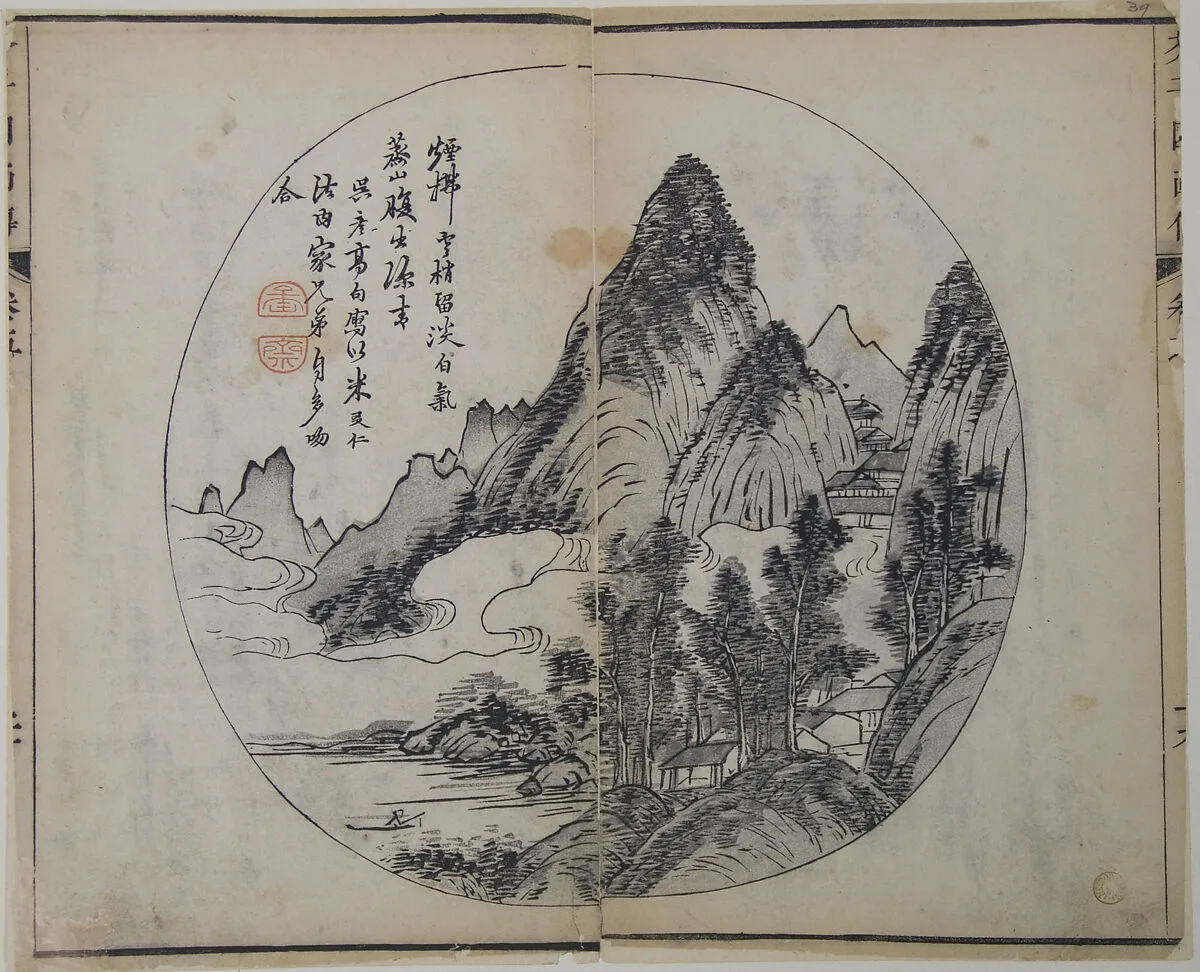 39
煙拂雲梢留淡白氣
蒸山腹出深青
吳彥高句寫以米友仁
法兩家兄弟自多吻
合
卷五